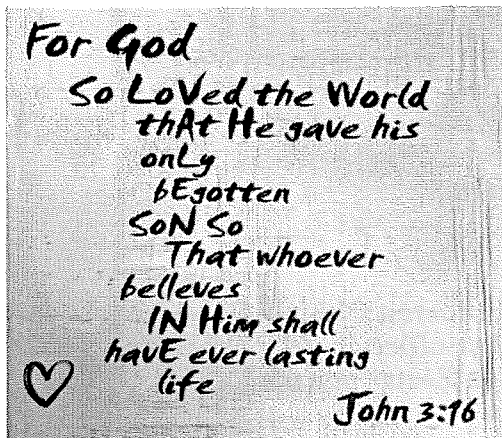 For God
So LoVed the World
thAt He gave his
onLy
bEgotten
SoN So
That whoever
belleves
IN Him shall
havE ever lasting
life
John 3:16